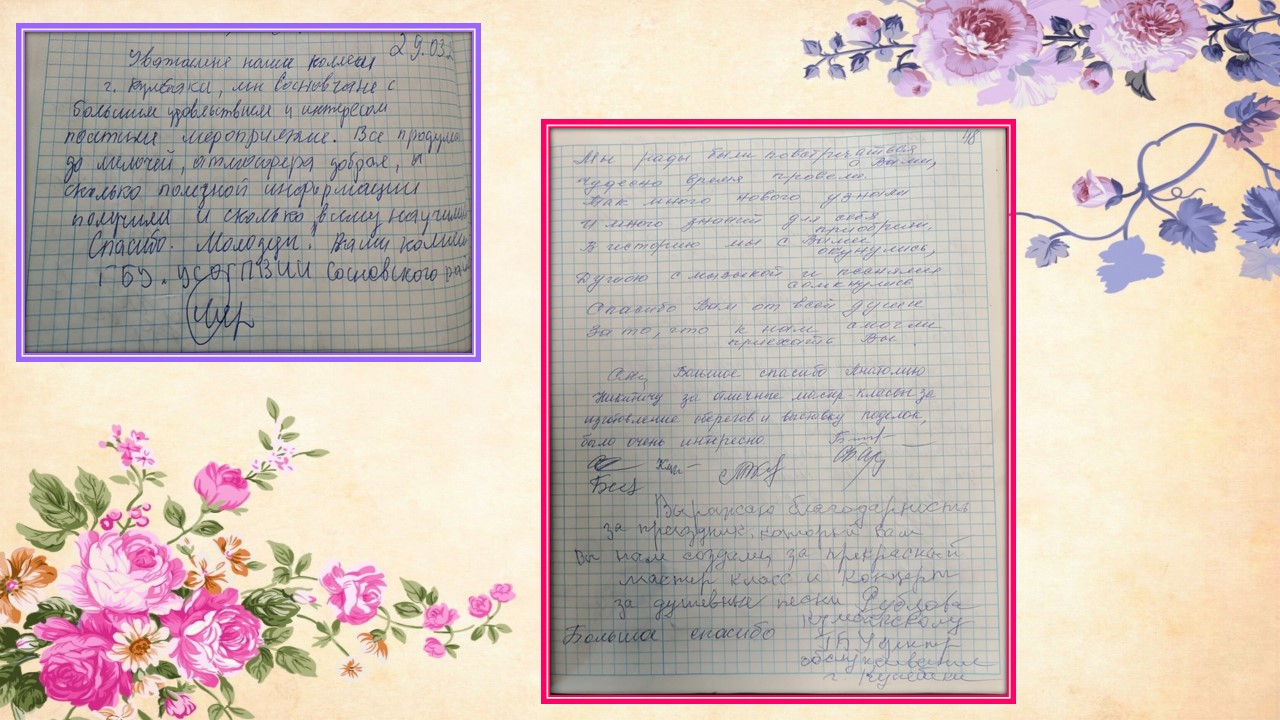 29.03.
Уважаемые наши коллеги
г. Кулебаки, мы Сосновчане с
большим удовольствием и интересом
посетили мероприятие. Все продума
до мелочей, атмосфера добрая, и
сколько полезной информации
получили и сколько всему научили
Спасибо. Молодцы! Ваши коллеги
ГБУ. УСОГПВИИ Сосновского рай
48
Мы рады были повстречаться
с Вами,
Чудесно время провели.
Мы много нового узнали
И много знаний для себя
приобрели,
В историю мы с Вами
окунулись,
Душою с музыкой и песнями
сомкнулись
Спасибо Вам от всей души
За то, что к нам смогли
приехать Вы.
Большое спасибо Анатолию
Никитичу за отличные мастер-классы за
изготовление оберегов и выставку поделок,
было очень интересно
Выражаю благодарность
за праздник, который Вам
Вы нам создали, за прекрасный
мастер класс и концерт
за душевные песни Рубцова
Большое спасибо Кулебакскому
ГБУ центр
обслуживания
г Кулебаки